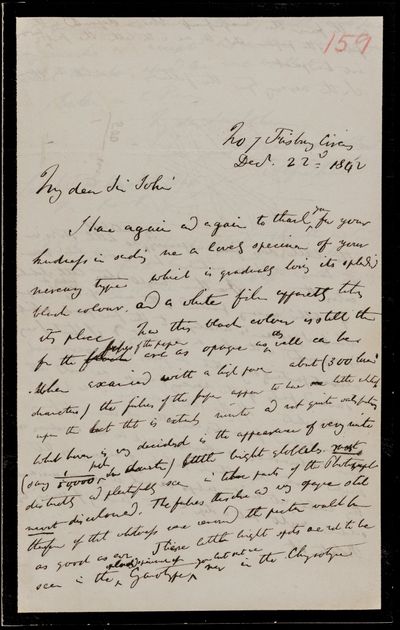 159
No 7 Finsbury Circus
Decr. 22nd 1842
My dear Sir John
I have again and again to thank you for your
kindness in sending me a lovely specimen of your
mercury type which is gradually losing its splendid
black colour, and a white film apparently taking
its place, has this black colour is still there
for the fibres of the paper are as opaque as they well can be
When examined with a high power about (300 linear
diameters) the fibres of the paper appear to have little
upon the but this is extremely minute and not quite satisfactory
What however is very decided is the appearance of very minute
(say inch in diameter) little bright globules.
distinctly and plentifully seen in these parts of the Photograph
discoloured. The fibres themselves are very opaque still
therefore if that were removed the picture would be
as good as ever. These little bright spots are not to be
seen in the specimens of your but not in
nor in the Chrysotype